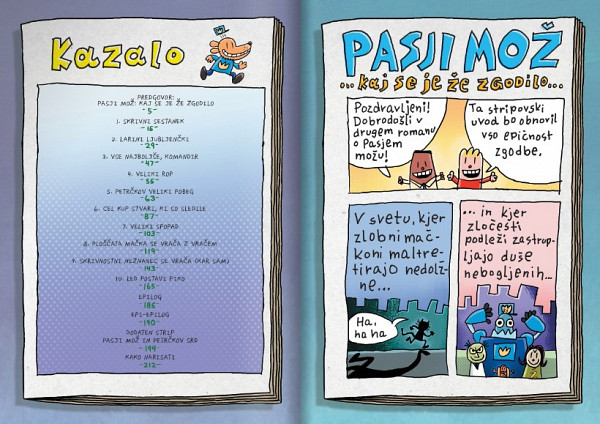 Kazalo
PREDGOVOR:
PASJI MOŽ: KAJ SE JE ŽE ZGODILO
-5-
1. SKRIVNI SESTANEK
-15-
2. LARINI LJUBLJENČKI
-29-
3. VSE NAJBOLJŠE, KOMANDIR
-47-
4. VELIKI ROP
-55-
5. PETRČKOV VELIKI POBEG
-63-
6. CEL KUP STVARI, KI SO SLEDILE
-87-
7. VELIKI SPOPAD
-103-
8. PLOŠČATA MAČKA SE VRAČA Z VRAČEM
-119-
9. SKRIVNOSTNI NEZNANEC SE VRAČA (KAR SAM)
-143-
10. LEO POSTAVI PIKO
-165-
EPILOG
-186-
EPI-EPILOG
-190-
DODATEN STRIP
PASJI MOŽ IN PETRČKOV SRD
-199-
KAKO NARISATI
-212-
PASJI MOŽ
...kaj se je že zgodilo...
Pozdravljeni!
Dobrodošli v
drugem romanu
o Pasjem
možu!
Ta stripovski
uvod bo obnovil
vso epičnost
zgodbe.
V svetu, kjer
zlobni mač-
koni maltre-
tirajo nedolž-
ne...
Ha,
ha ha
...in kjer
zločesti
podleži zastrup-
ljajo duše
nebogljenih...